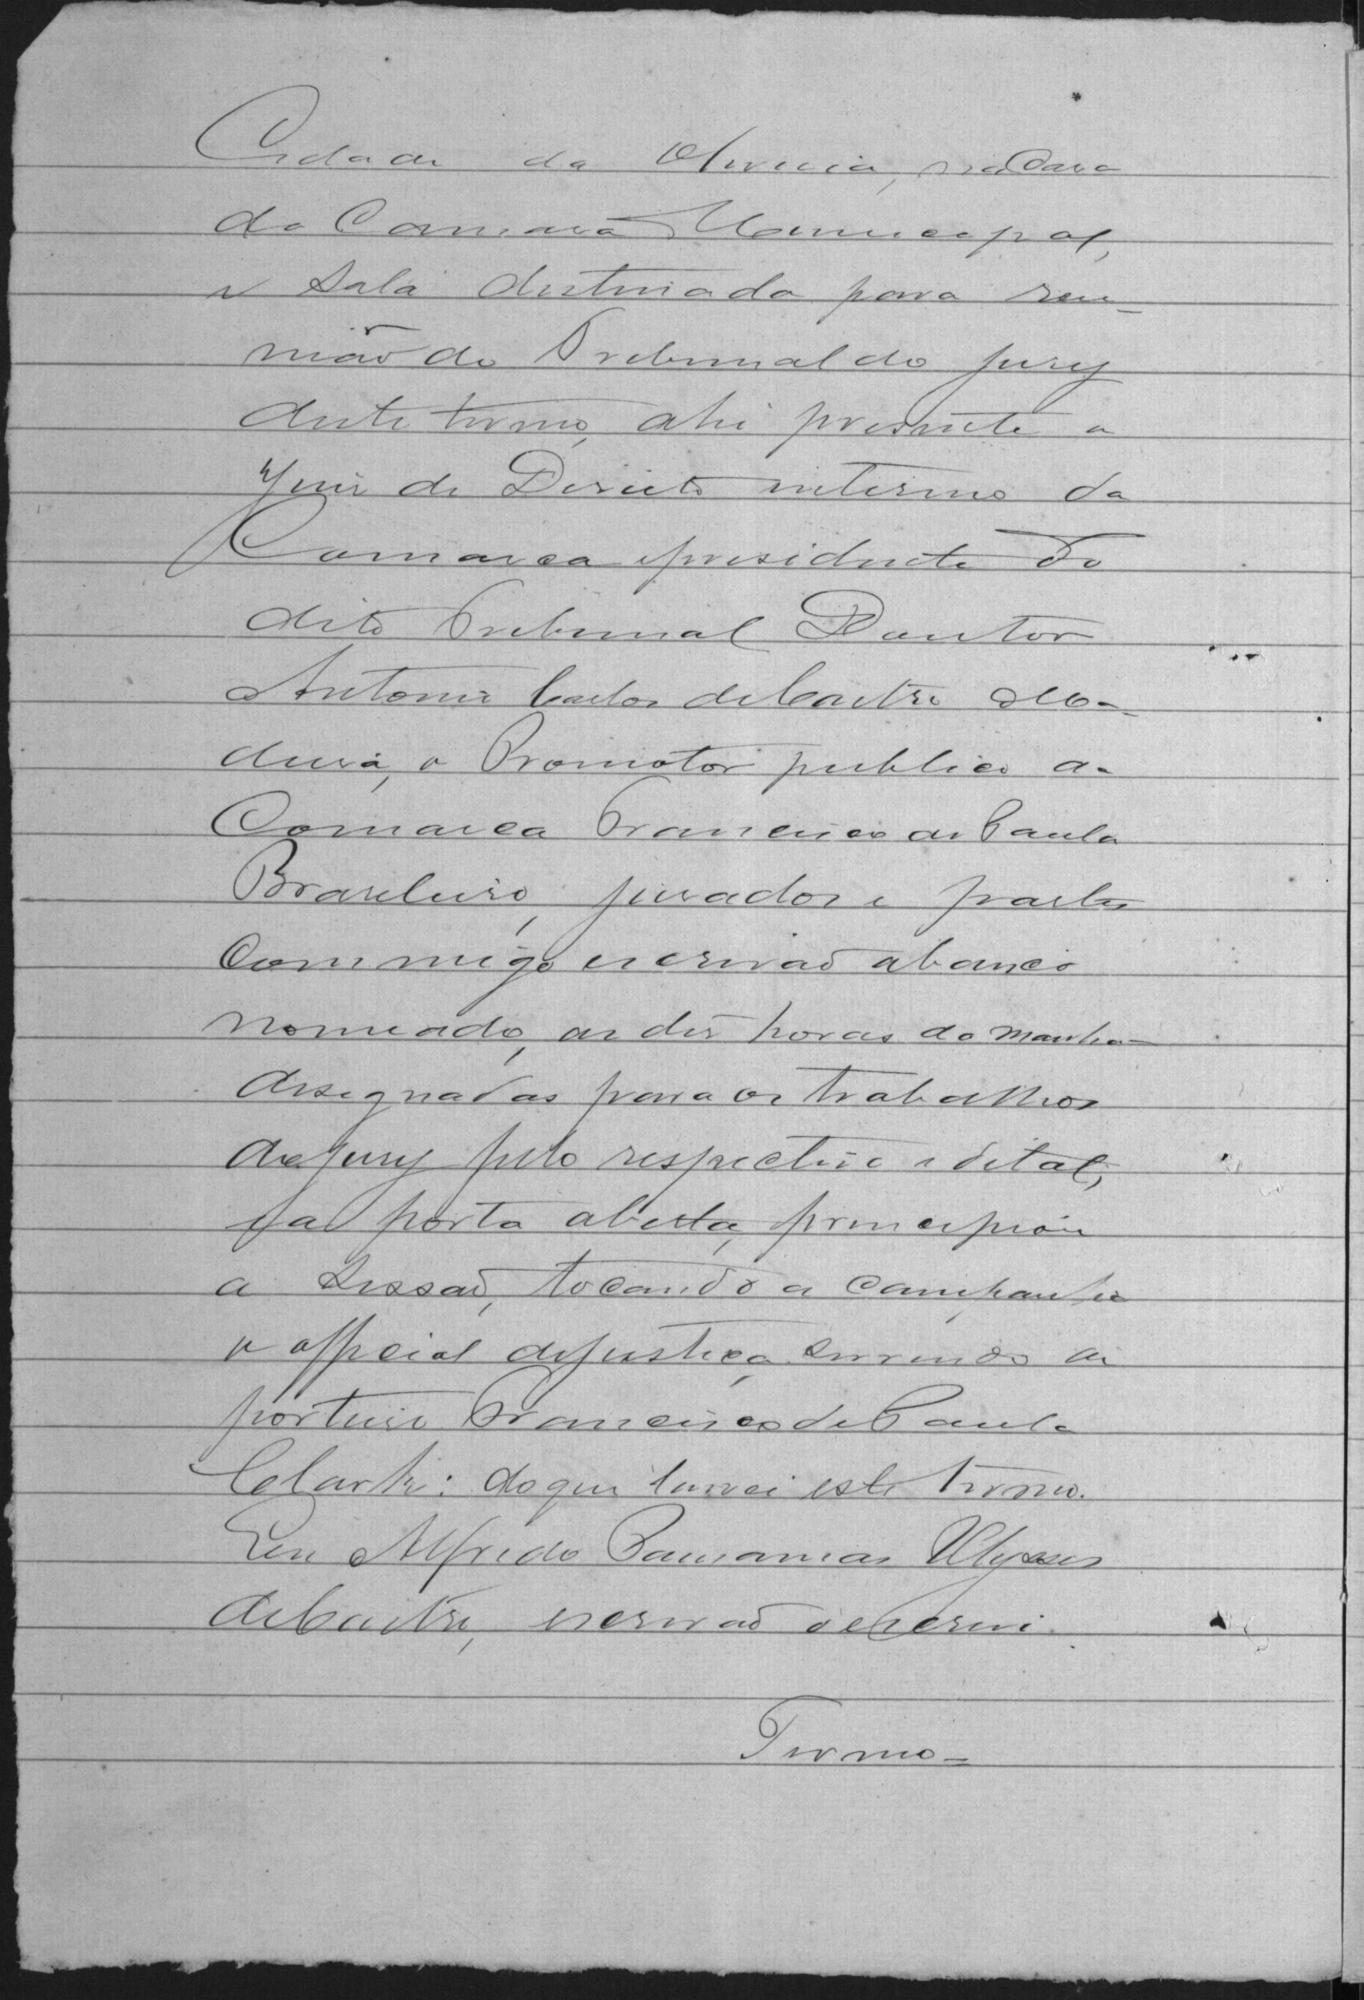 Cidade da Oliveira, na Casa
da Camara Municipal,
e sala destinada para reu-
nião do Tribunal do Jury
deste termo, ahi presente o
Juiz de Direito interino da
Comarca e presidente do
dito Tribunal Doutor
Antonio Carlos de Castro Ma-
dura, o Promotor publico da
Comarca Francisco de Paula
Brasileiro, jurados e partes
commigo escrivão abaixo
nomeado, as dez horas da manhã
designadas para os trabalhos
do jury pelo respectivo edital,
e a porta aberta, principiou
a sessão, tocando a campanha
o official de justiça, servindo de
porteiro Francisco de Paula
: do que lavrei este termo.
Eu Alfredo Pausanias Ulysses
de Castro, escrivão o escrevi.
Termo-